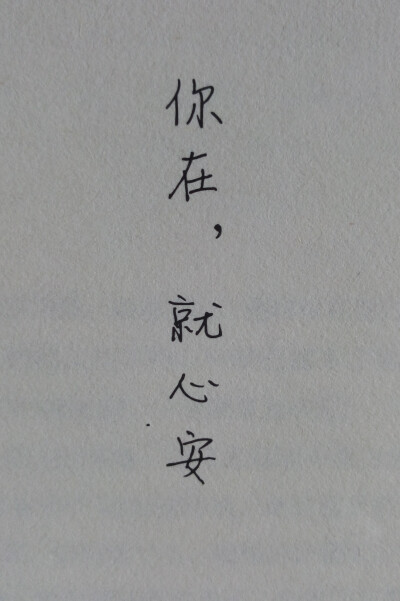 你在，就心安